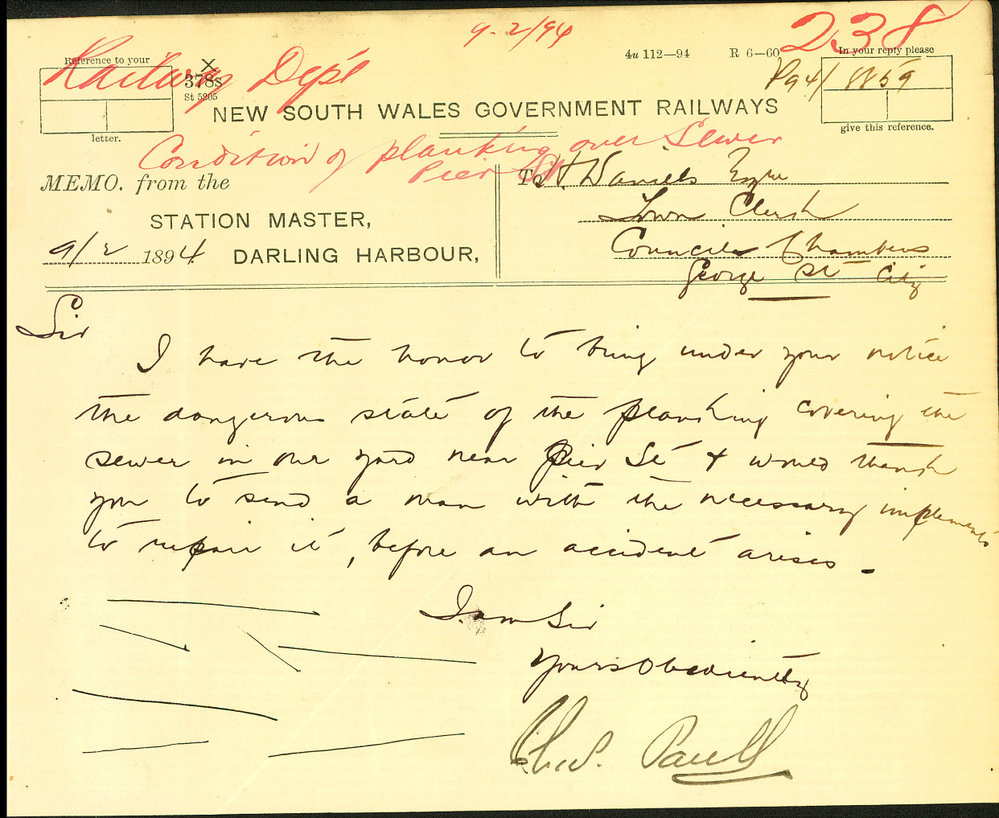 9-2/94
238
4u 112—94 R 6—60
Reference to your
Railway Dept
X
378s
St 5205
In your reply please
P94/ 8859
NEW SOUTH WALES GOVERNMENT RAILWAYS
letter.
give this reference.
Condition of planking over Sewer
Pier St
MEMO. from the
To H. Daniels Esqre
STATION MASTER,
Town Clerk
9/2 1894 DARLING HARBOUR,
Council Chambers
George St City
Sir
I have the honor to bring under your notice
the dangerous state of the planking covering the
sewer in our yard near Pier St & would thank
you to send a man with the necessary implements
to repair it, before an accident arises -
I am Sir
Yours Obediently